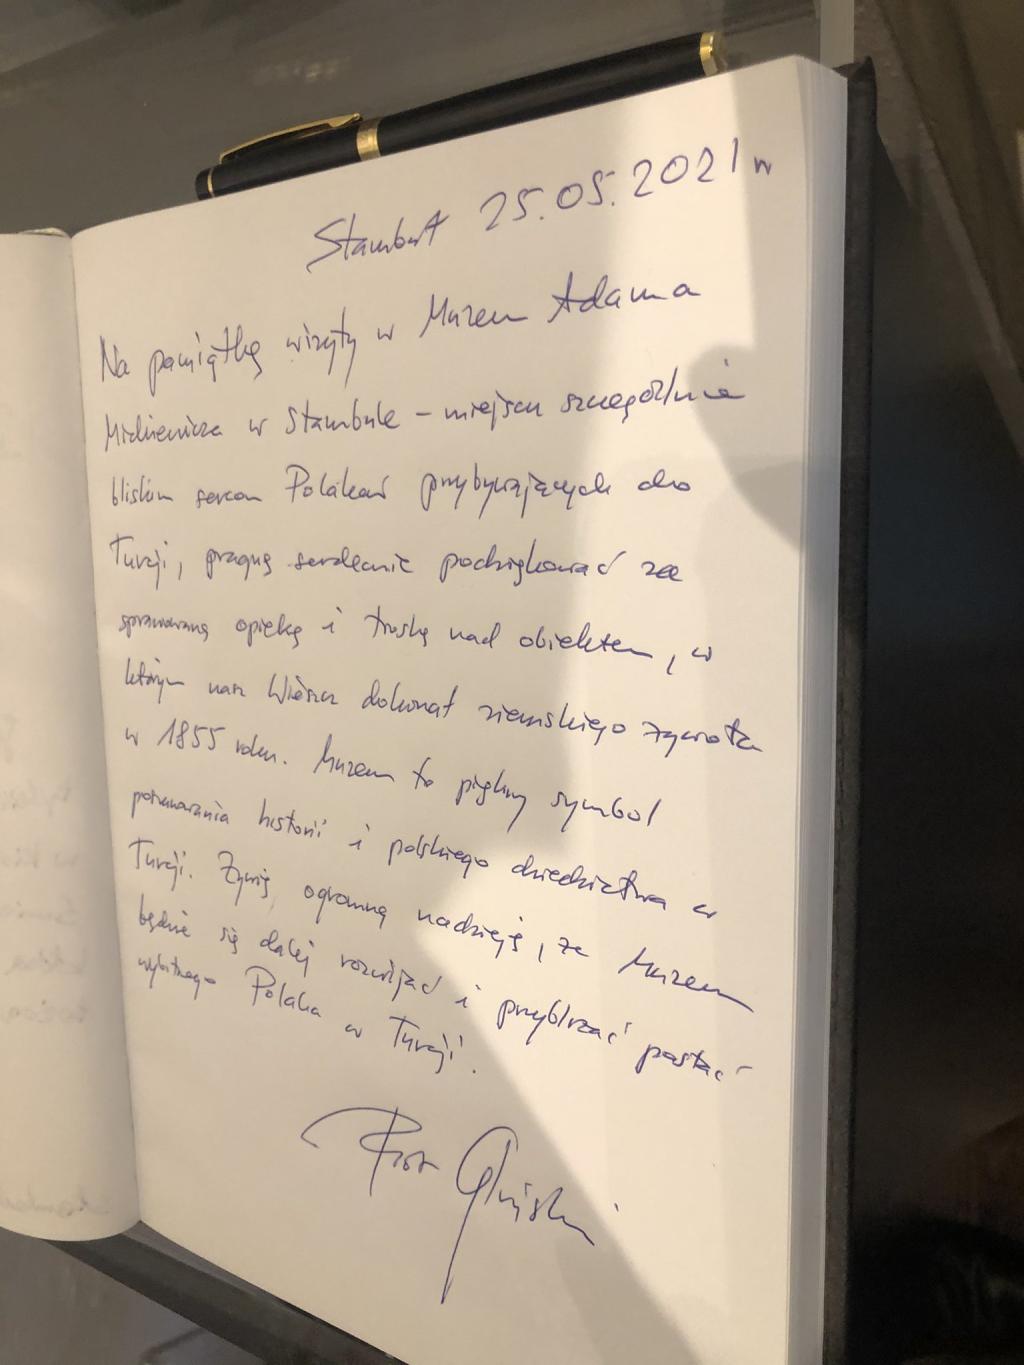 Stambuł 25.05.2021 r.
Na pamiątkę wizyty w Muzeum Adama
Mickiewicza w Stambule – miejscu szczególnie
bliskim sercom Polaków przybywających do
Turcji, pragnę serdecznie podziękować za
sprawowaną opiekę i troskę nad obiektem, w
którym nasz Wieszcz dokonał ziemskiego żywota
w 1855 roku. Muzeum to piękny symbol
poszanowania historii i polskiego dziedzictwa w
Turcji. Żywię ogromną nadzieję, że Muzeum
będzie się dalej rozwijać i przybliżać postać
wybitnego Polaka w Turcji.
Piotr Gliński